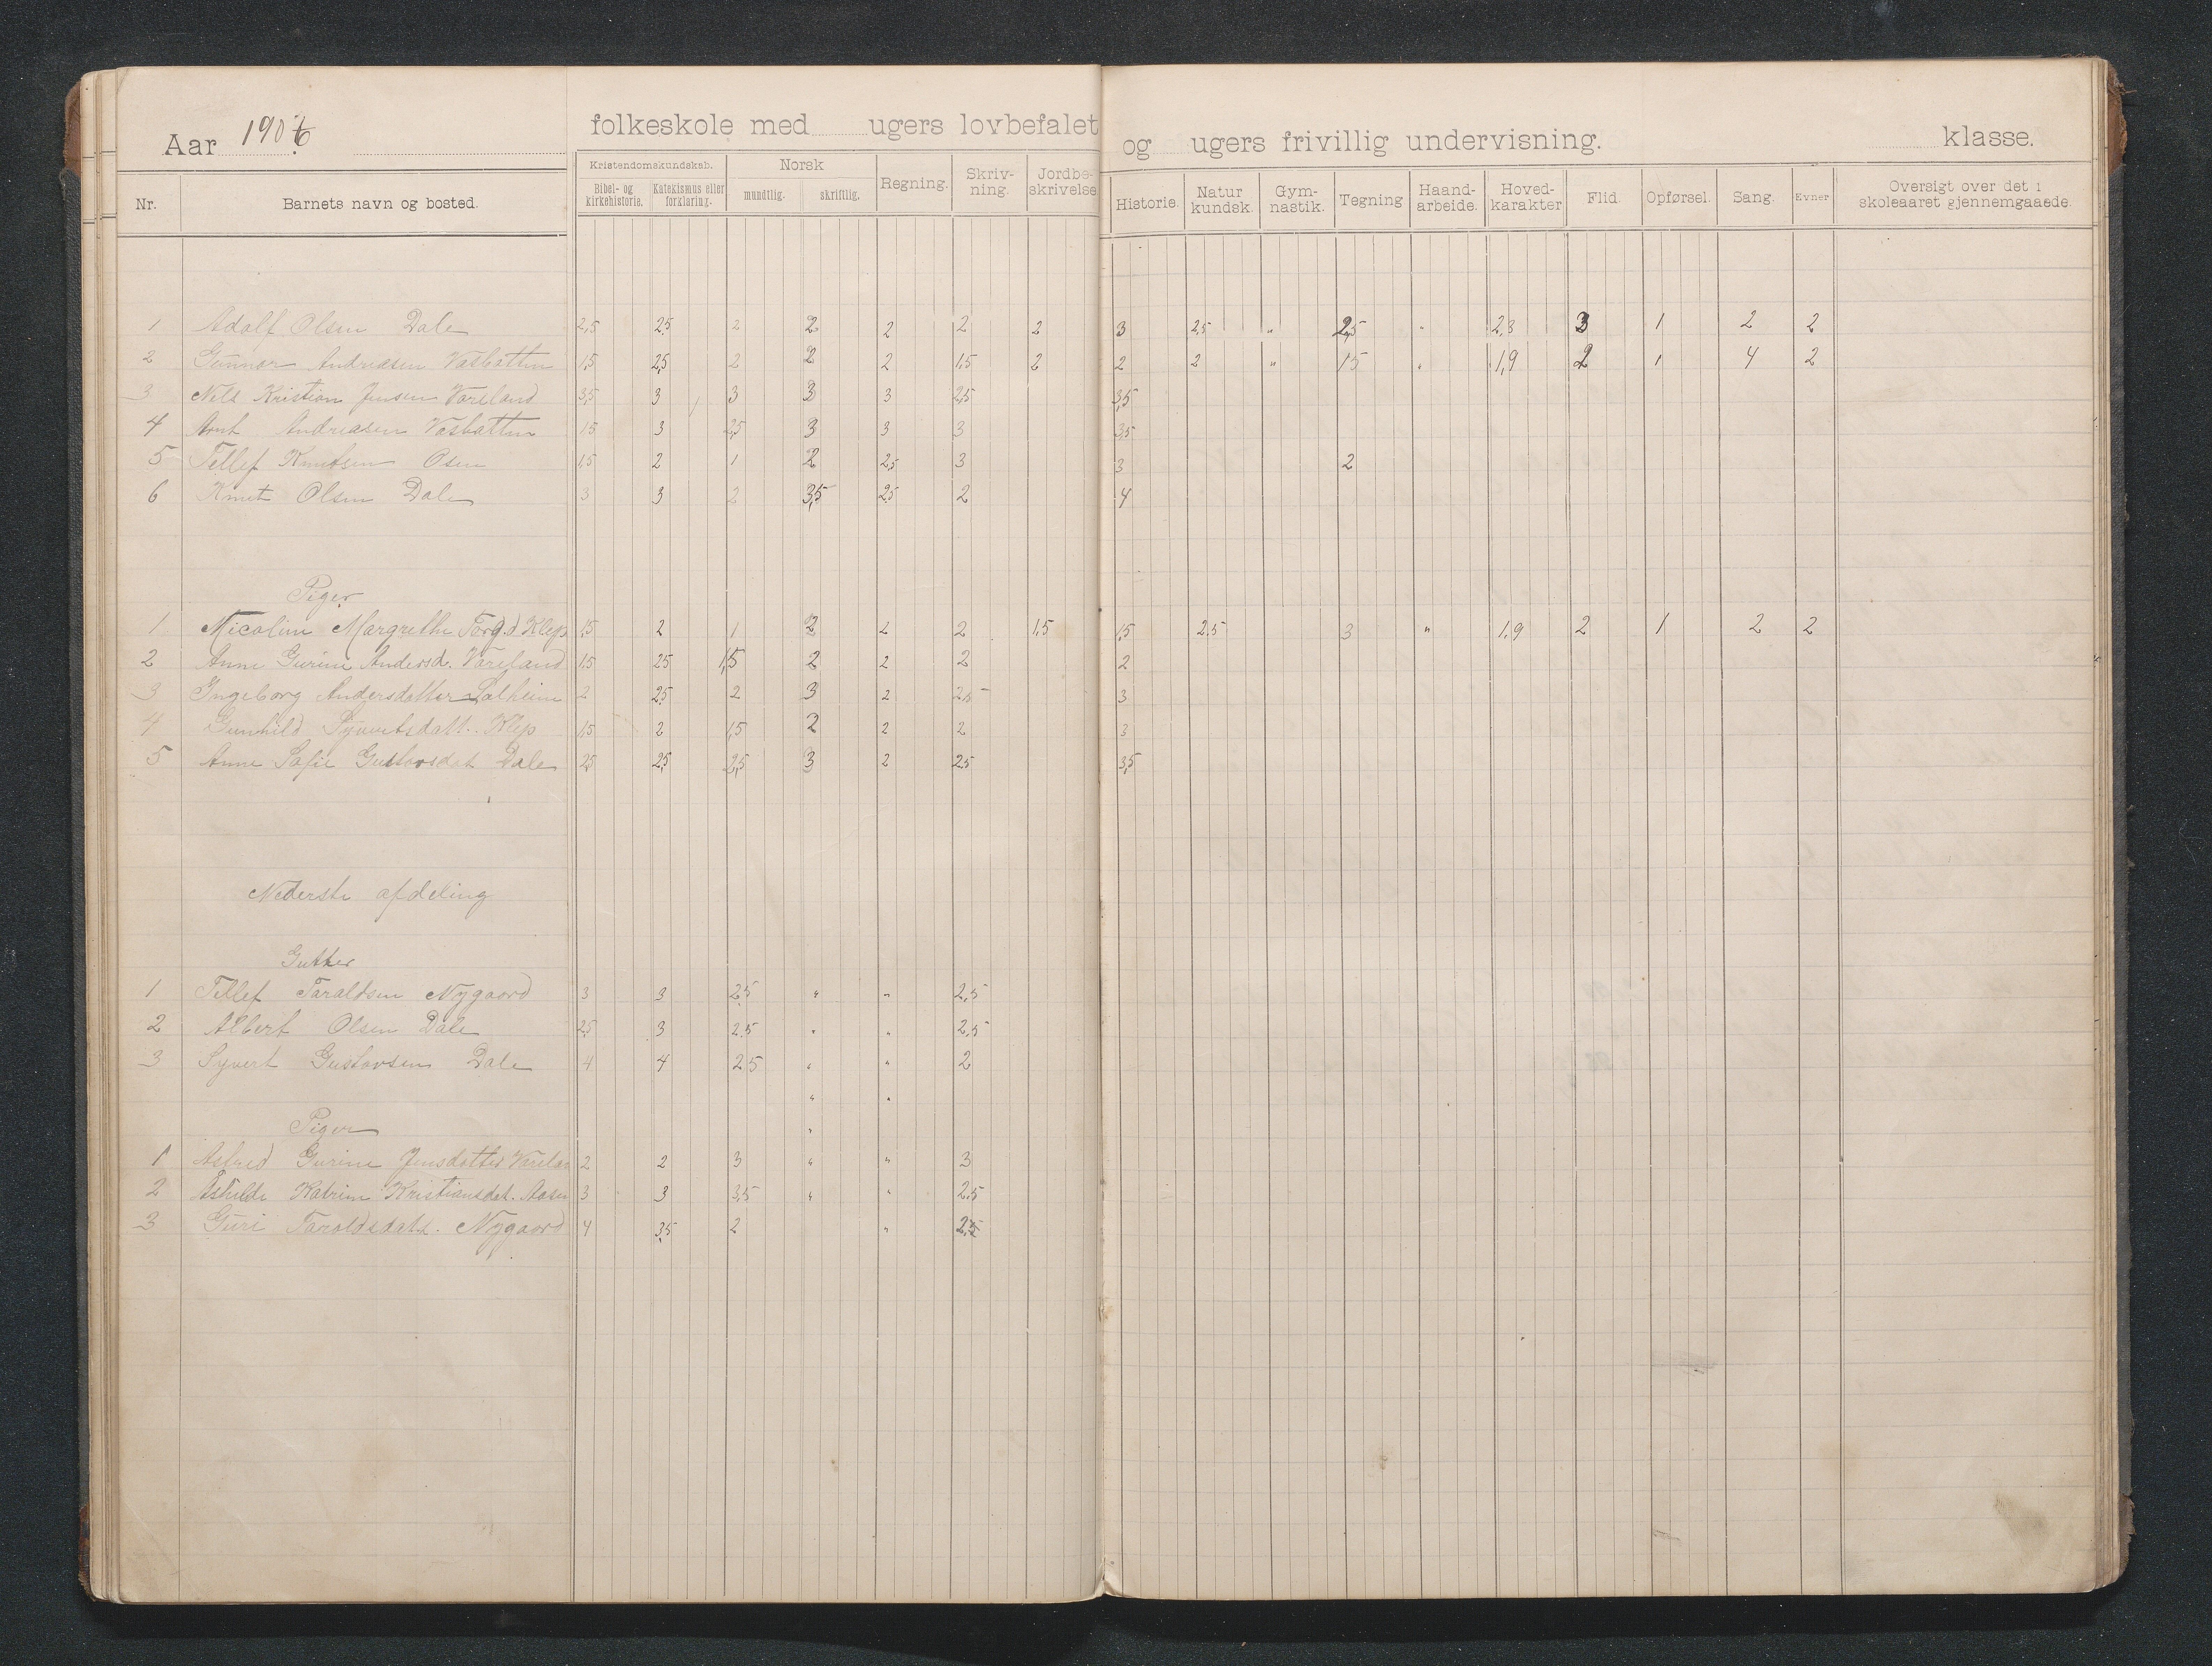 Aar 1906 folkeskole med ugers lovbefalet og ugers frivillig undervisning. klasse.
Nr. Barnets navn og bosted. Kristendomskundskab. Bibel- og kirkehistorie. Katekismus eller forklaring. Norsk mundtlig. skriftlig. Regning. Skriv-ning. Jordbe-skrivelse Historie. Natur kundsk. Gym-nastik. Tegning Haand-arbeide. Hoved-karakter Flid. Opførsel. Sang. Evner Oversigt over det i skoleaaret gjennemgaaede.
1 Adolf Olsen Dale 2,5 2,5 2 2 2 2 2 3 2,5 " 2,5 " 2,3 3 1 2 2
2 Gunnar Andreasen Vasbatten 1,5 2,5 2 2 2 1,5 2 2 2 " 1 5 " 1,9 2 1 4 2
3 Nils Kristian Jensen Vareland 3,5 3 3 3 3 2,5 3,5
4 Arnt Andreasen Vasbatten 1 5 3 2,5 3 3 3 3,5
5 Tellef Knutsen Osen 1,5 2 1 2 2,5 3 3 2
6 Knut Olsen Dale 3 3 2 3,5 2,5 2 4
Piger
1 Nicoline Margrethe Torg.d. Klep 1,5 2 1 2 2 2 1,5 1,5 2,5 3 " 1,9 2 1 2 2
2 Anne Gurine Andersd. Vareland 1,5 2,5 1,5 2 2 2 2
3 Ingeborg Andersdatter Solheim 2 2,5 2 3 2 2,5 3
4 Gunhild Syvertsdatt. Klep 1,5 2 1,5 2 2 2 3
5 Anne Sofie Gustavsdat Dale 2,5 2,5 2,5 3 2 2,5 3,5
Nederste afdeling
Gutter
1 Tellef Taraldsen Nygaard 3 3 2,5 " " 2,5
2 Albert Olsen Dale 2,5 3 2,5 " " 2,5
3 Syvert Gustavsen Dale 4 4 2 5 " " 2
" "
Piger "
1 Astrid Gurine Jensdatter Varelan 2 2 3 " " 3
2 Ashilde Katrine Kristiansdat. Aasen 3 3 3,5 " " 2,5
3 Guri Taraldsdatt. Nygaard 4 3,5 2 " 2,5